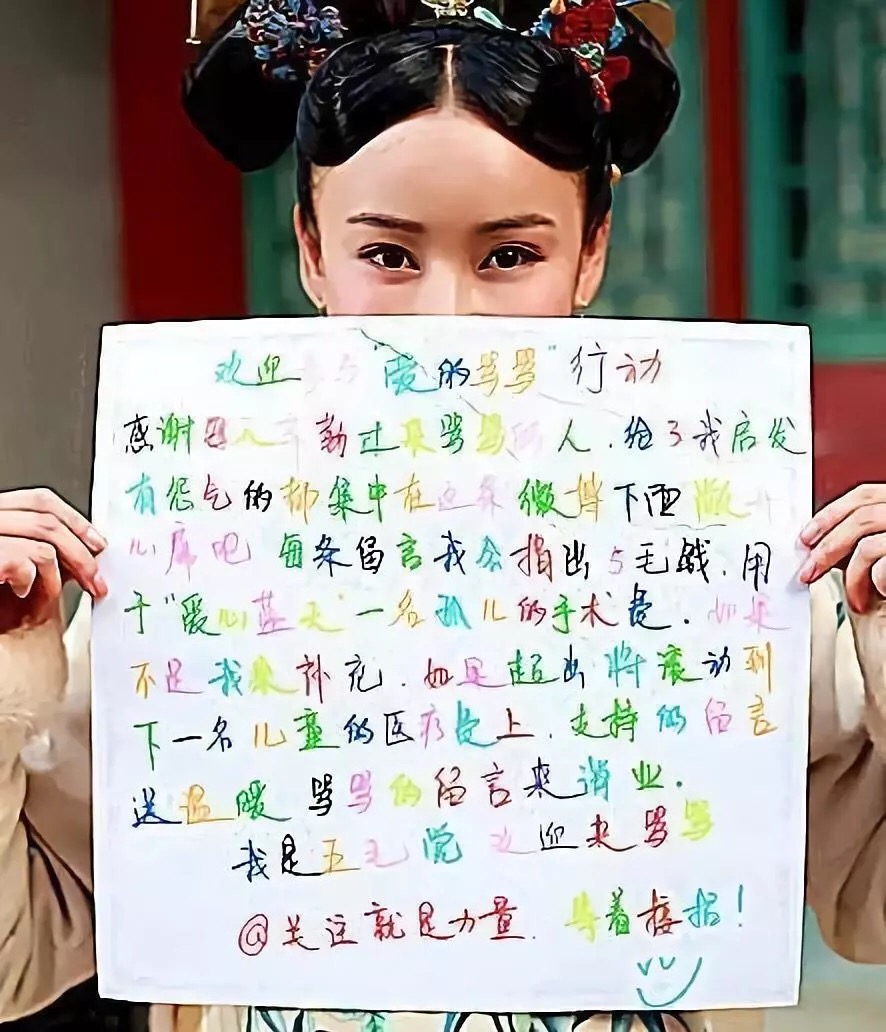 欢迎参与“爱的骂骂”行动
感谢因人辛勤过来骂骂的人.给了我启发
有怨气的都集中在这条微博下面敞开
心扉吧 每条留言我会捐出5毛钱.用
于“爱心蓝天”一名孤儿的手术费.如果
不足我来补充.如果超出将滚动到
下一名儿童的医疗费上.支持的留言
送温暖 骂骂的留言来消业.
我是五毛党 欢迎来骂骂
@关注就是力量.等着接招!